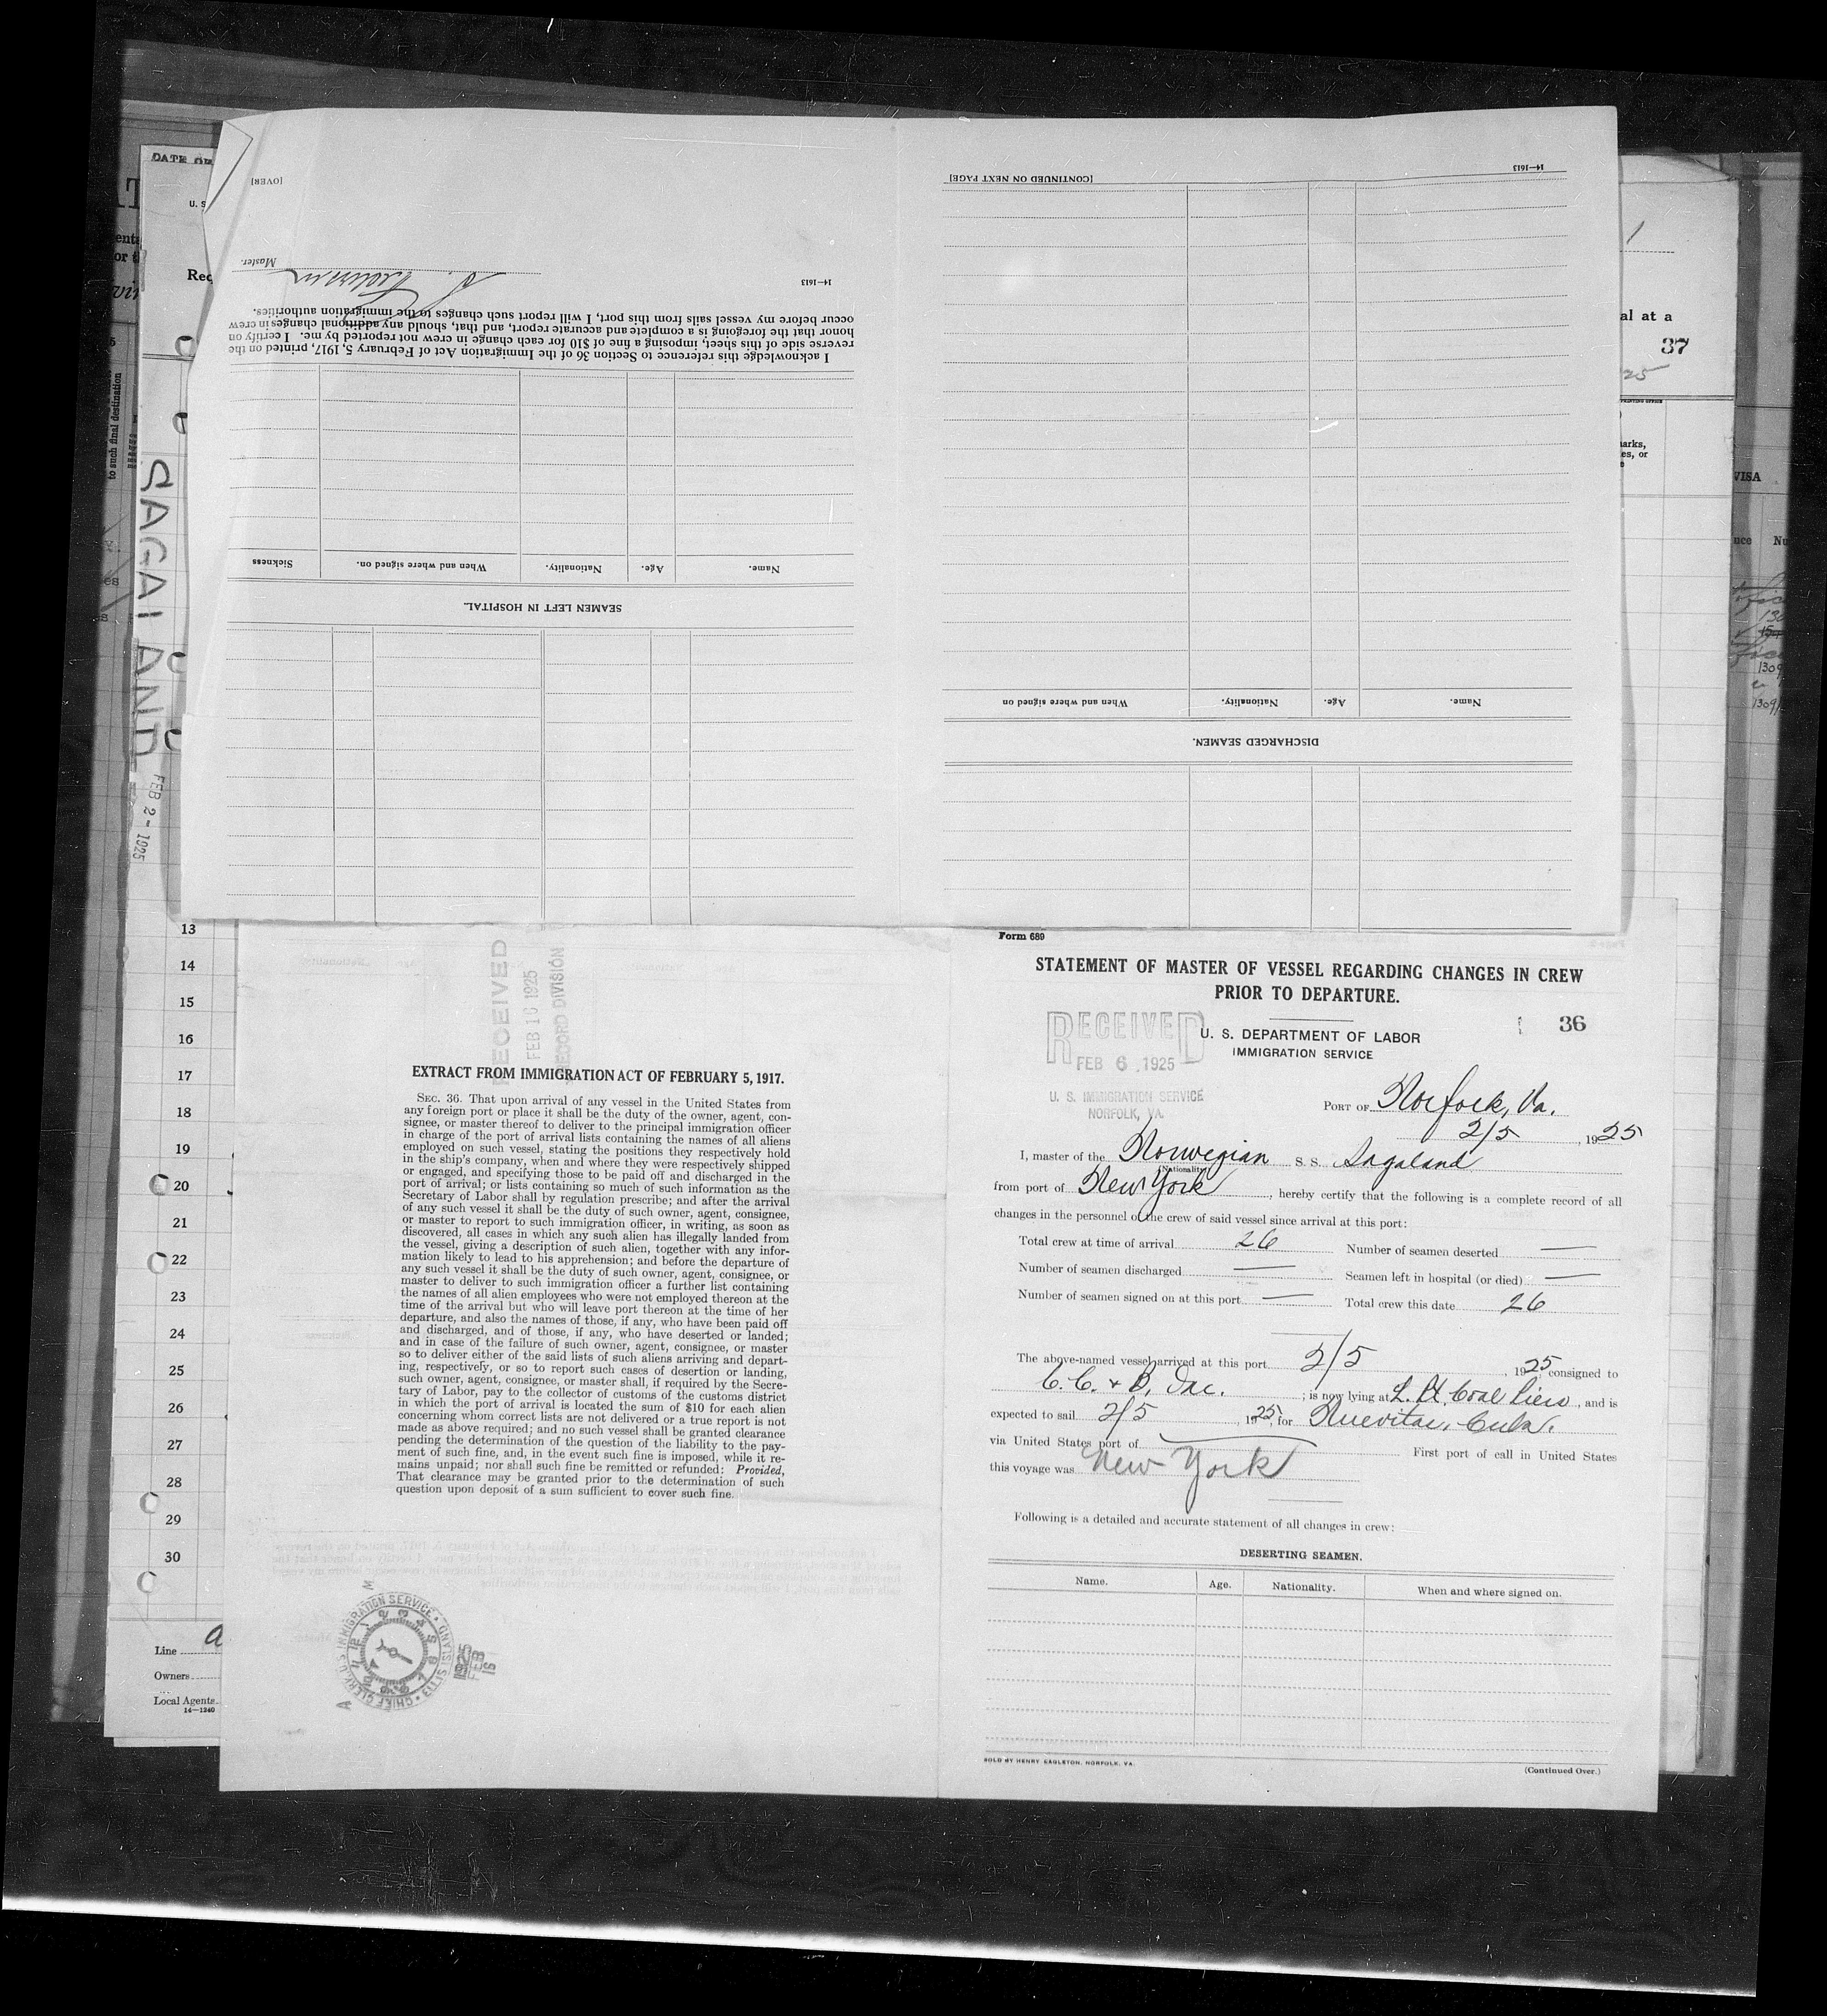 [OVER]
14—1613
Master.
I acknowledge this reference to Section 36 of the Immigration Act of February 5, 1917, printed on the
reverse side of this sheet, imposing a fine of $10 for each change in crew not reported by me. I certify on
honor that the foregoing is a complete and accurate report, and that, should any additional changes in crew
occur before my vessel sails from this port, I will report such changes to the immigration authorities.
Name. Age. Nationality. When and where signed on. Sickness
SEAMEN LEFT IN HOSPITAL.
14—1613
[CONTINUED ON NEXT PAGE]
Name. Age. Nationality. When and where signed on
DISCHARGED SEAMEN.
DATE OF
U. S
Rec
SAGALAND
FEB 2 - 1925
to such final destination
al at a
37
25
arks,
es, or
VISA
nce Nu
13
14
15
16
17
18
19
20
21
22
23
24
25
26
27
28
29
30
Line
Owners
Local Agents
14—1240
RECEIVED
FEB 10 1925
RECORD DIVISION
EXTRACT FROM IMMIGRATION ACT OF FEBRUARY 5, 1917.
SEC. 36. That upon arrival of any vessel in the United States from
any foreign port or place it shall be the duty of the owner, agent, con-
signee, or master thereof to deliver to the principal immigration officer
in charge of the port of arrival lists containing the names of all aliens
employed on such vessel, stating the positions they respectively hold
in the ship's company, when and where they were respectively shipped
or engaged, and specifying those to be paid off and discharged in the
port of arrival; or lists containing so much of such information as the
Secretary of Labor shall by regulation prescribe; and after the arrival
of any such vessel it shall be the duty of such owner, agent, consignee,
or master to report to such immigration officer, in writing, as soon as
discovered, all cases in which any such alien has illegally landed from
the vessel, giving a description of such alien, together with any infor-
mation likely to lead to his apprehension; and before the departure of
any such vessel it shall be the duty of such owner, agent, consignee, or
master to deliver to such immigration officer a further list containing
the names of all alien employees who were not employed thereon at the
time of the arrival but who will leave port thereon at the time of her
departure, and also the names of those, if any, who have been paid off
and discharged, and of those, if any, who have deserted or landed;
and in case of the failure of such owner, agent, consignee, or master
so to deliver either of the said lists of such aliens arriving and depart-
ing, respectively, or so to report such cases of desertion or landing,
such owner, agent, consignee, or master shall, if required by the Secre-
tary of Labor, pay to the collector of customs of the customs district
in which the port of arrival is located the sum of $10 for each alien
concerning whom correct lists are not delivered or a true report is not
made as above required; and no such vessel shall be granted clearance
pending the determination of the question of the liability to the pay-
ment of such fine, and, in the event such fine is imposed, while it re-
mains unpaid; nor shall such fine be remitted or refunded: Provided,
That clearance may be granted prior to the determination of such
question upon deposit of a sum sufficient to cover such fine.
CHIEF CLERK, U.S. IMMIGRATION SERVICE · ELLIS ISLAND
1925
FEB
Form 689
STATEMENT OF MASTER OF VESSEL REGARDING CHANGES IN CREW
PRIOR TO DEPARTURE.
36
U. S. DEPARTMENT OF LABOR
IMMIGRATION SERVICE
RECEIVED
FEB 6 1925
U. S. IMMIGRATION SERVICE
NORFOLK, VA.
PORT OF Norfolk, Va.
2/5, 1925
I, master of the Norwegian S. S. Sagaland
(Nationality)
from port of New York, hereby certify that the following is a complete record of all
changes in the personnel of the crew of said vessel since arrival at this port:
Total crew at time of arrival 26 Number of seamen deserted —
Number of seamen discharged — Seamen left in hospital (or died) —
Number of seamen signed on at this port — Total crew this date 26
The above-named vessel arrived at this port 2/5, 1925 consigned to
C. C. & B. Inc.; is now lying at L. Pt. Coal Piers, and is
expected to sail 2/5, 1925, for Nuevitas, Cuba.
via United States port of — First port of call in United States
this voyage was New York
Following is a detailed and accurate statement of all changes in crew:
DESERTING SEAMEN.
Name. Age. Nationality. When and where signed on.
SOLD BY HENRY EAGLETON, NORFOLK, VA.
(Continued Over.)